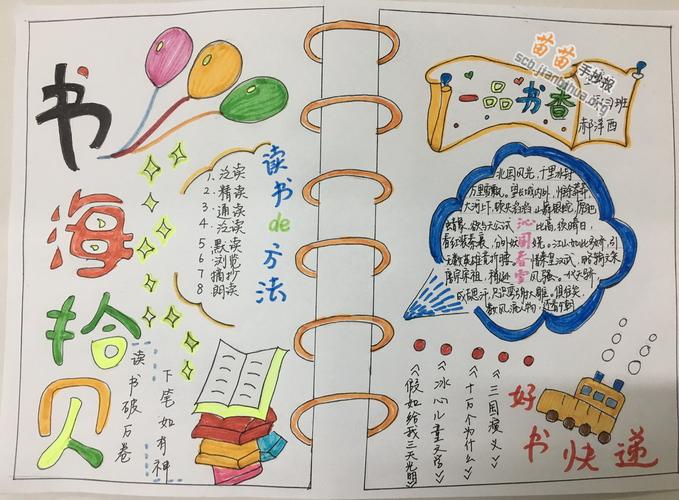 书海拾贝
读书de方法
1. 泛读
2. 精读
3. 通读
4 泛读
5 默读
6 浏览
7 摘抄
8 朗读
读书破万卷
下笔如有神
苗苗手抄报
scb.jianbihua.org
一品书香
班
郝泽西
沁园春雪
北国风光,千里冰封
万里雪飘。望长城内外,惟余莽莽
大河上下,顿失滔滔。山舞银蛇,原驰
蜡象,欲与天公试比高。须晴日,
看红装素裹,分外妖娆。江山如此多娇,引
无数英雄竞折腰。惜秦皇汉武,略输文采
唐宗宋祖,稍逊风骚。一代天骄,
成吉思汗,只识弯弓射大雕。俱往矣,
数风流人物,还看今朝
《三国演义》
《十万个为什么》
《冰心儿童文学》
《假如给我三天光明》
好书快递